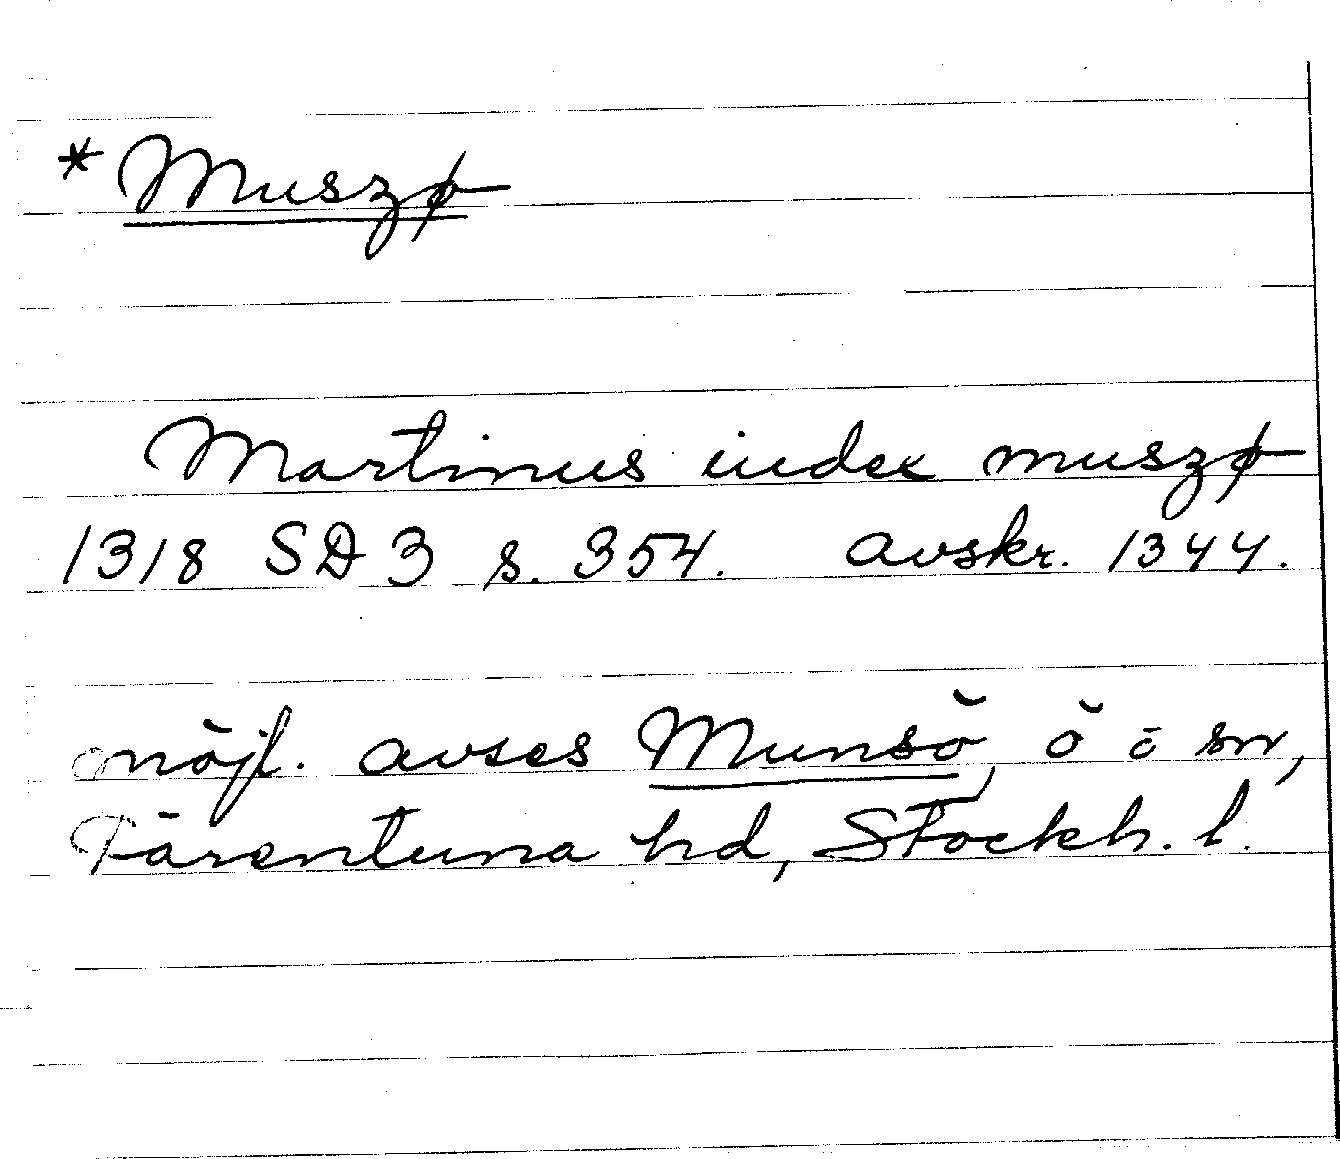 *Muszø
Martinus iudex muszø
1318 SD 3 s. 354. avskr. 1344.
möjl. avses Munsö, ö o sn,
Färentuna hd, Stockh. l.